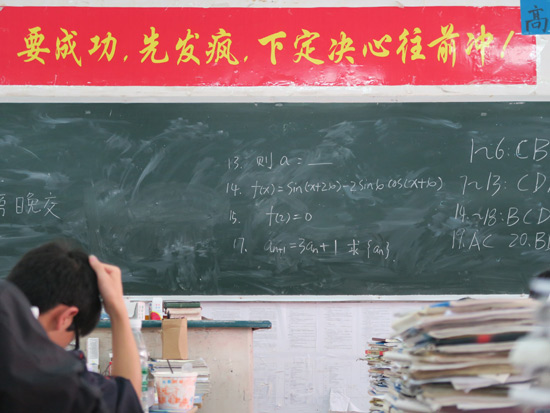 要成功,先发疯,下定决心往前冲!
高
13. 则a=__
14. f(x)=sin(x+2φ)-2sinφcos(x+φ)
15. f(2)=0
17. an+1=3an+1 求{an}.
周日晚交
1~6: CB
7~13: CD
14~18: BCD
19. AC 20. B